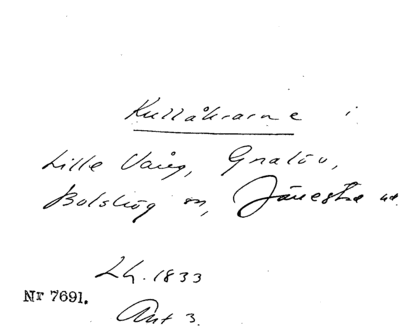 Kullåkrarne i
Lille Vång, Gnalöv,
Bolshög m,
Lh. 1833
Nr 7691.
Ant 3.